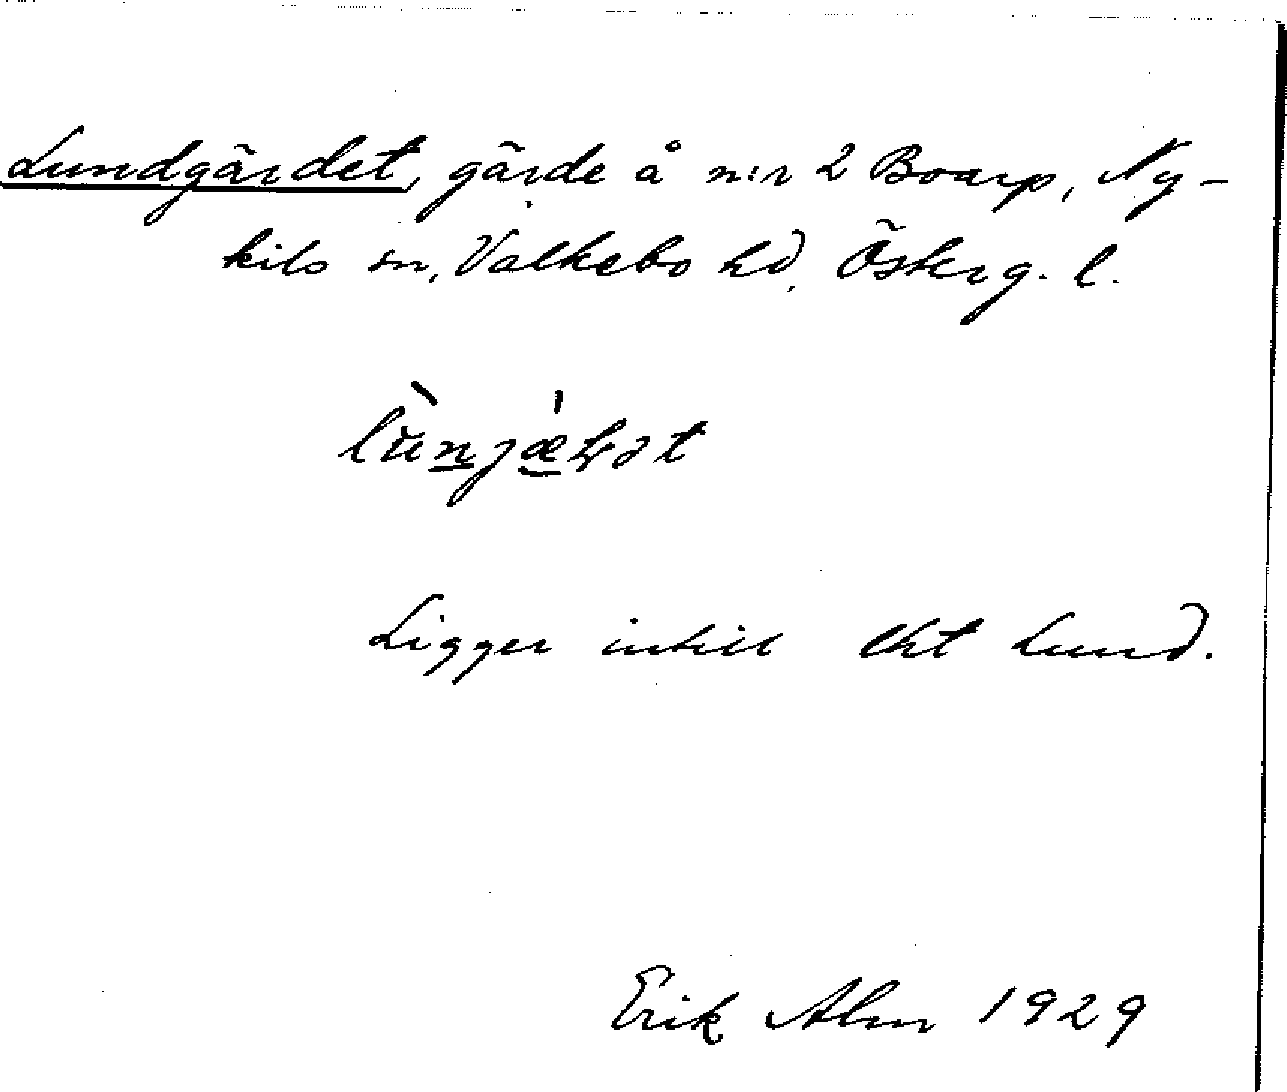 Lundgärdet, gärde å n:r 2 Boarp, Ny-
kils sn, Valkebo hd, Österg. l.
Ligger intill lht Lund.
Erik Alm 1929